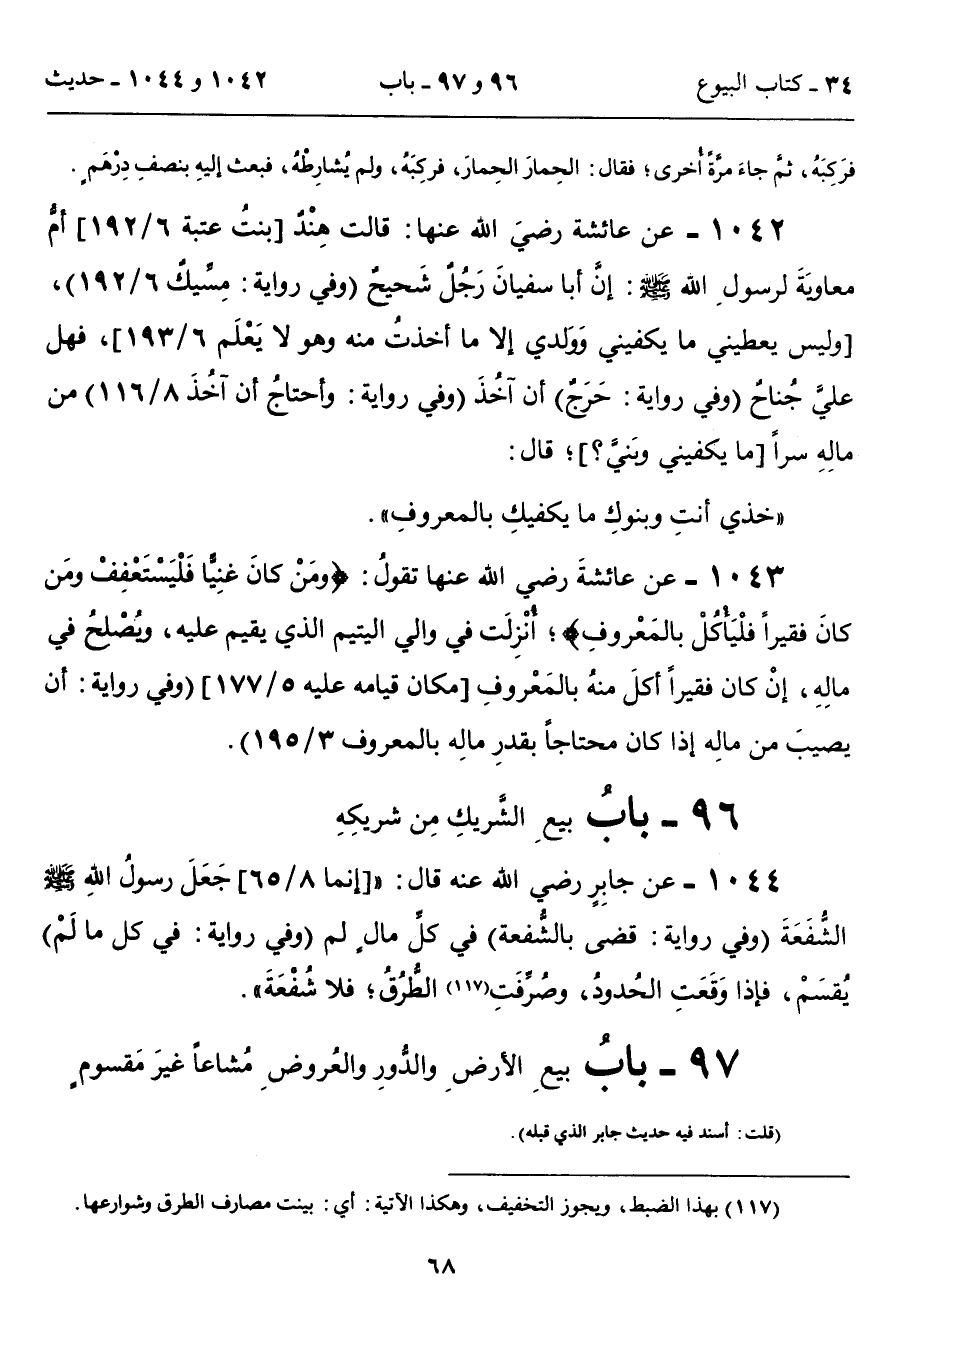 ٣٤ ـ كتاب البيوع
٩٦ و ٩٧ ـ باب
١٠٤٢ و ١٠٤٤ ـ حديث
فَرَكِبَهُ، ثمَّ جاءَ مرَّةً أُخرى؛ فقال: الحِمارَ الحِمارَ، فركِبَهُ، ولم يُشارِطْهُ، فبعث إليهِ بنصفِ دِرْهَمٍ.
١٠٤٢ ـ عن عائشة رضيَ الله عنها: قالت هِنْدٌ [بنتُ عتبة ١٩٢/٦] أمُّ
معاويَةَ لرسولِ الله ﷺ: إنَّ أبا سفيانَ رَجُلٌ شَحيحٌ (وفي رواية: مِسِّيكٌ ١٩٢/٦)،
[وليس يعطيني ما يكفيني وَوَلدي إلا ما أخذتُ منه وهو لا يَعْلَم ١٩٣/٦]، فهل
عليَّ جُناحٌ (وفي رواية: حَرَجٌ) أن آخُذَ (وفي رواية: وأحتاجُ أن آخُذَ ١١٦/٨) من
مالِهِ سراً [ما يكفيني وبَنيَّ؟]؛ قال:
«خذي أنتِ وبنوكِ ما يكفيكِ بالمعروفِ».
١٠٤٣ ـ عن عائشةَ رضي الله عنها تقولُ: ﴿ومَنْ كانَ غنِيًّا فَلْيَسْتَعْفِفْ ومَن
كانَ فقيراً فلْيَأْكُلْ بالمَعْروفِ﴾؛ أُنْزِلَت في والي اليتيم الذي يقيم عليه، ويُصْلحُ في
مالِهِ، إنْ كان فقيراً أكلَ منهُ بالمَعْروفِ [مكان قيامه عليه ١٧٧/٥] (وفي رواية: أن
يصيبَ من مالِه إذا كان محتاجاً بقدرِ مالِه بالمعروف ١٩٥/٣).
٩٦ ـ بابُ بيعِ الشَّريكِ مِن شريكِهِ
١٠٤٤ ـ عن جابِرٍ رضي الله عنه قال: «[إنما ٦٥/٨] جَعَلَ رسولُ اللهِ ﷺ
الشُّفَعَةَ (وفي رواية: قضى بالشُّفعة) في كلِّ مالٍ لم (وفي رواية: في كل ما لَمْ)
يُقسَمْ، فإذا وَقَعَتِ الحُدودُ، وصُرِّفَتِ(١١٧) الطُّرُقُ؛ فلا شُفْعَةَ».
٩٧ ـ بابُ بيعِ الأرضِ والدُّورِ والعُروضِ مُشاعاً غيرَ مَقسومٍ
(قلت: أسند فيه حديث جابر الذي قبله).
(١١٧) بهذا الضبط، ويجوز التخفيف، وهكذا الآتية: أي: بينت مصارف الطرق وشوارعها.
٦٨